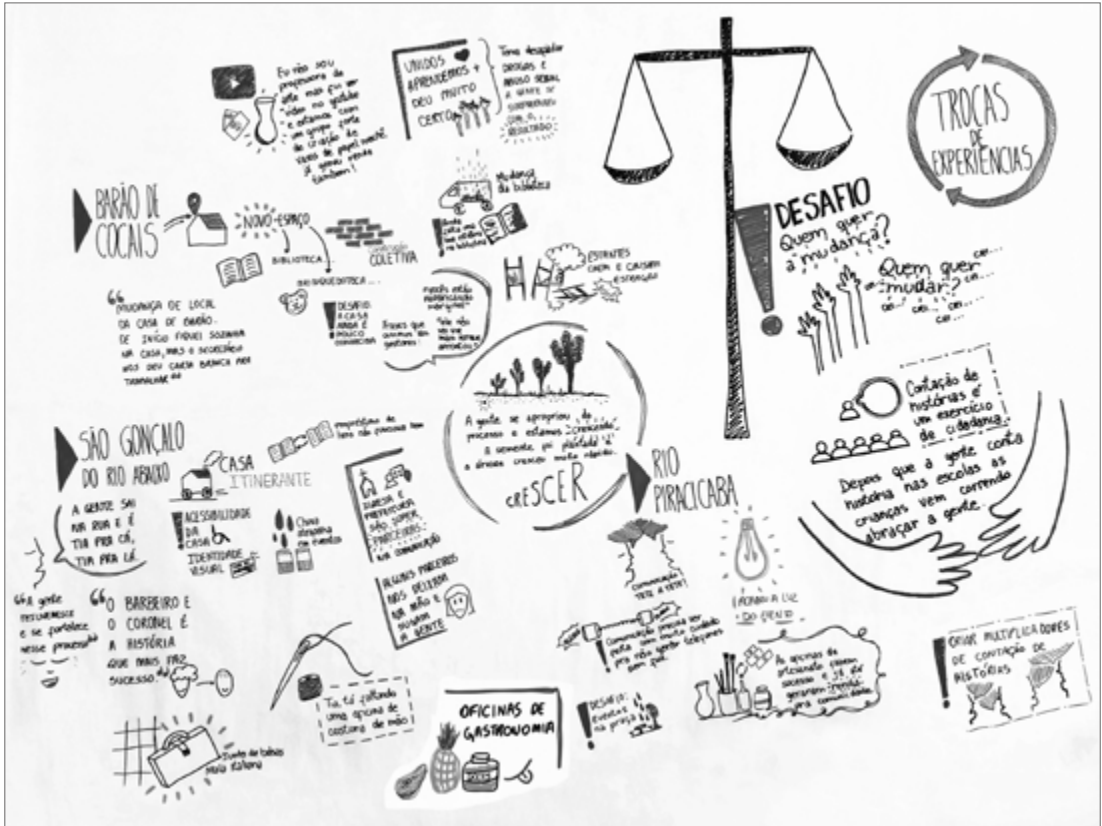 Eu não sou
professora de
arte mas fui ver
vídeo no youtube
e estamos com
um grupo forte
de criação de
vasos de papel machê.
já gerou renda
também!
UNIDOS
APRENDEMOS +
DEU MUITO
CERTO
Tema desafiador
DROGAS E
ABUSO SEXUAL
A GENTE SE
SURPREENDEU
COM O
RESULTADO
TROCAS
DE
EXPERIÊNCIAS
BARÃO DE
COCAIS
NOVO ESPAÇO
BIBLIOTECA...
BRINQUEDOTECA...
COLETIVA
Mudança
da biblioteca
ESTANTES
CAEM E CAUSAM
ESTRAGÃO
DESAFIO:
A CASA
AINDA É
POUCO
CONHECIDA
Frases que
ouvimos dos
gestores:
"MUDANÇA DE LOCAL
DA CASA DE BARÃO.
DE INÍCIO FIQUEI SOZINHA
NA CASA, MAS O SECRETÁRIO
NOS DEU CARTA BRANCA PRA
TRABALHAR"
DESAFIO
Quem quer
a mudança?
Quem quer
mudar?
cri...
cri...
cri...
cri...
cri...
Contação de
histórias é
um exercício
de cidadania.
Depois que a gente conta
história nas escolas as
crianças vem correndo
abraçar a gente.
A gente se apropriou do
processo e estamos "crescendo"
A semente foi plantada e
a árvore cresceu muito rápido.
CRESCER
SÃO GONÇALO
DO RIO ABAIXO
CASA
ITINERANTE
A GENTE SAI
NA RUA E É
TIA PRA CÁ,
TIA PRA LÁ.
ACESSIBILIDADE
DA
CASA
IDENTIDADE
VISUAL
Chuva
atrapalha
os eventos
IGREJA E
PREFEITURA
SÃO SUPER
PARCEIRAS
NA COMUNICAÇÃO
ALGUNS PARCEIROS
NOS DEIXAM
NA MÃO E
SUGAM
A GENTE
"A gente
e se fortalece
nesse processo"
"O BARBEIRO E
O CORONEL É
A HISTÓRIA
QUE MAIS FAZ
SUCESSO."
Tia, tá faltando
uma oficina de
costura de mão!
OFICINAS DE
GASTRONOMIA
RIO
PIRACICABA
COMUNICAÇÃO
TETE A TETE!
ACABOU A LUZ
DO EVENTO
Comunicação precisa ser
feita com muito cuidado
pra não gerar
DESAFIO:
eventos
na praça
As oficinas de
artesanato fizeram
sucesso e já
geraram renda
para comunidade.
CRIAR MULTIPLICADORES
DE CONTAÇÃO DE
HISTÓRIAS